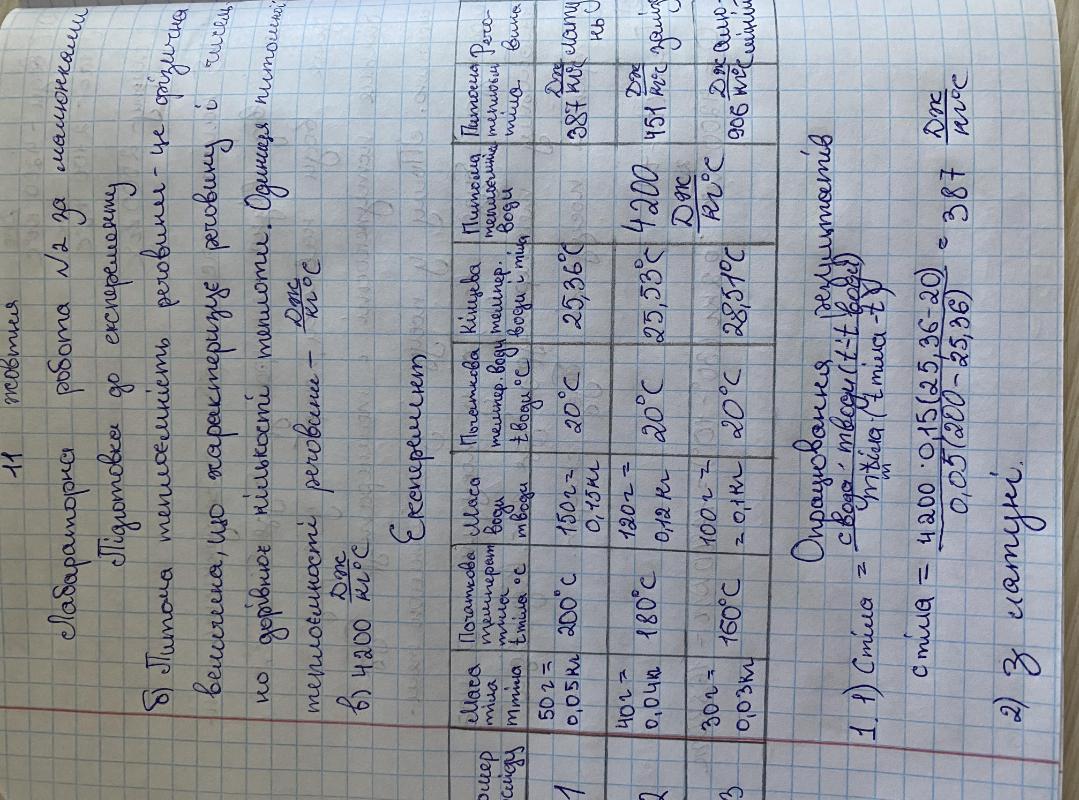 11 жовтня
Лабараторна робота №2 за малюнками
Підготовка до експеременту
б) Питома теплоємність речовини - це фізична
величина, що характеризує речовину і чисель
но дорівнює кількості теплоти. Одиниця питомої
теплоємності речовини — Дж/кг°С
в) 4200 Дж/кг°С
Експеремент
омер Маса тіла mтіла Початкова температ тіла tтіла °С Маса води mводи Початкова темпер. води tводи °С Кінцева темпер. води і тіла Питома теплоємніс води Питома теплоєм тіла Речо- вина
1 50г = 0,05кг 200°С 150г = 0,15кг 20°С 25,36°С 4200 Дж/кг°С 387 Дж/кг°С лату нь
2 40г = 0,04к 180°С 120г = 0,12кг 20°С 25,53°С 451 Дж/кг°С заліз
3 30г = 0,03кг 160°С 100г = = 0,1кг 20°С 28,51°С 906 Дж/кг°С алю- міній
Опрацювання результатів
1. 1) Cтіла = cводи · mводи (t - t води) / mтіла (t тіла - t)
cтіла = 4200 · 0,15 (25,36 - 20) / 0,05 (200 - 25,36) = 387 Дж/кг°С
2) З латуні.